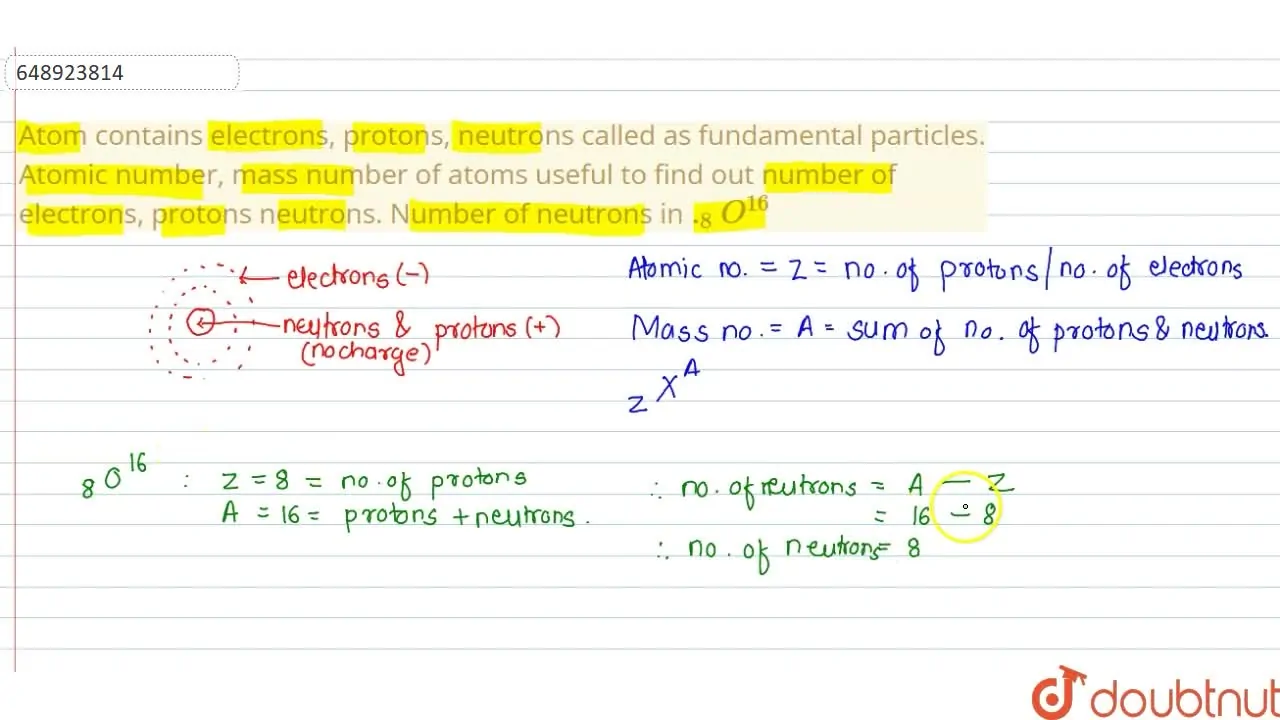 648923814
Atom contains electrons, protons, neutrons called as fundamental particles.
Atomic number, mass number of atoms useful to find out number of
electrons, protons neutrons. Number of neutrons in .₈ O¹⁶
electrons (-)
neutrons & protons (+)
(no charge)
Atomic no. = Z = no. of protons/no. of electrons
Mass no. = A = sum of no. of protons & neutrons.
zXᴬ
₈O¹⁶ : Z = 8 = no. of protons
A = 16 = protons + neutrons.
∴ no. of neutrons = A - Z
= 16 - 8
∴ no. of neutrons = 8
doubtnut